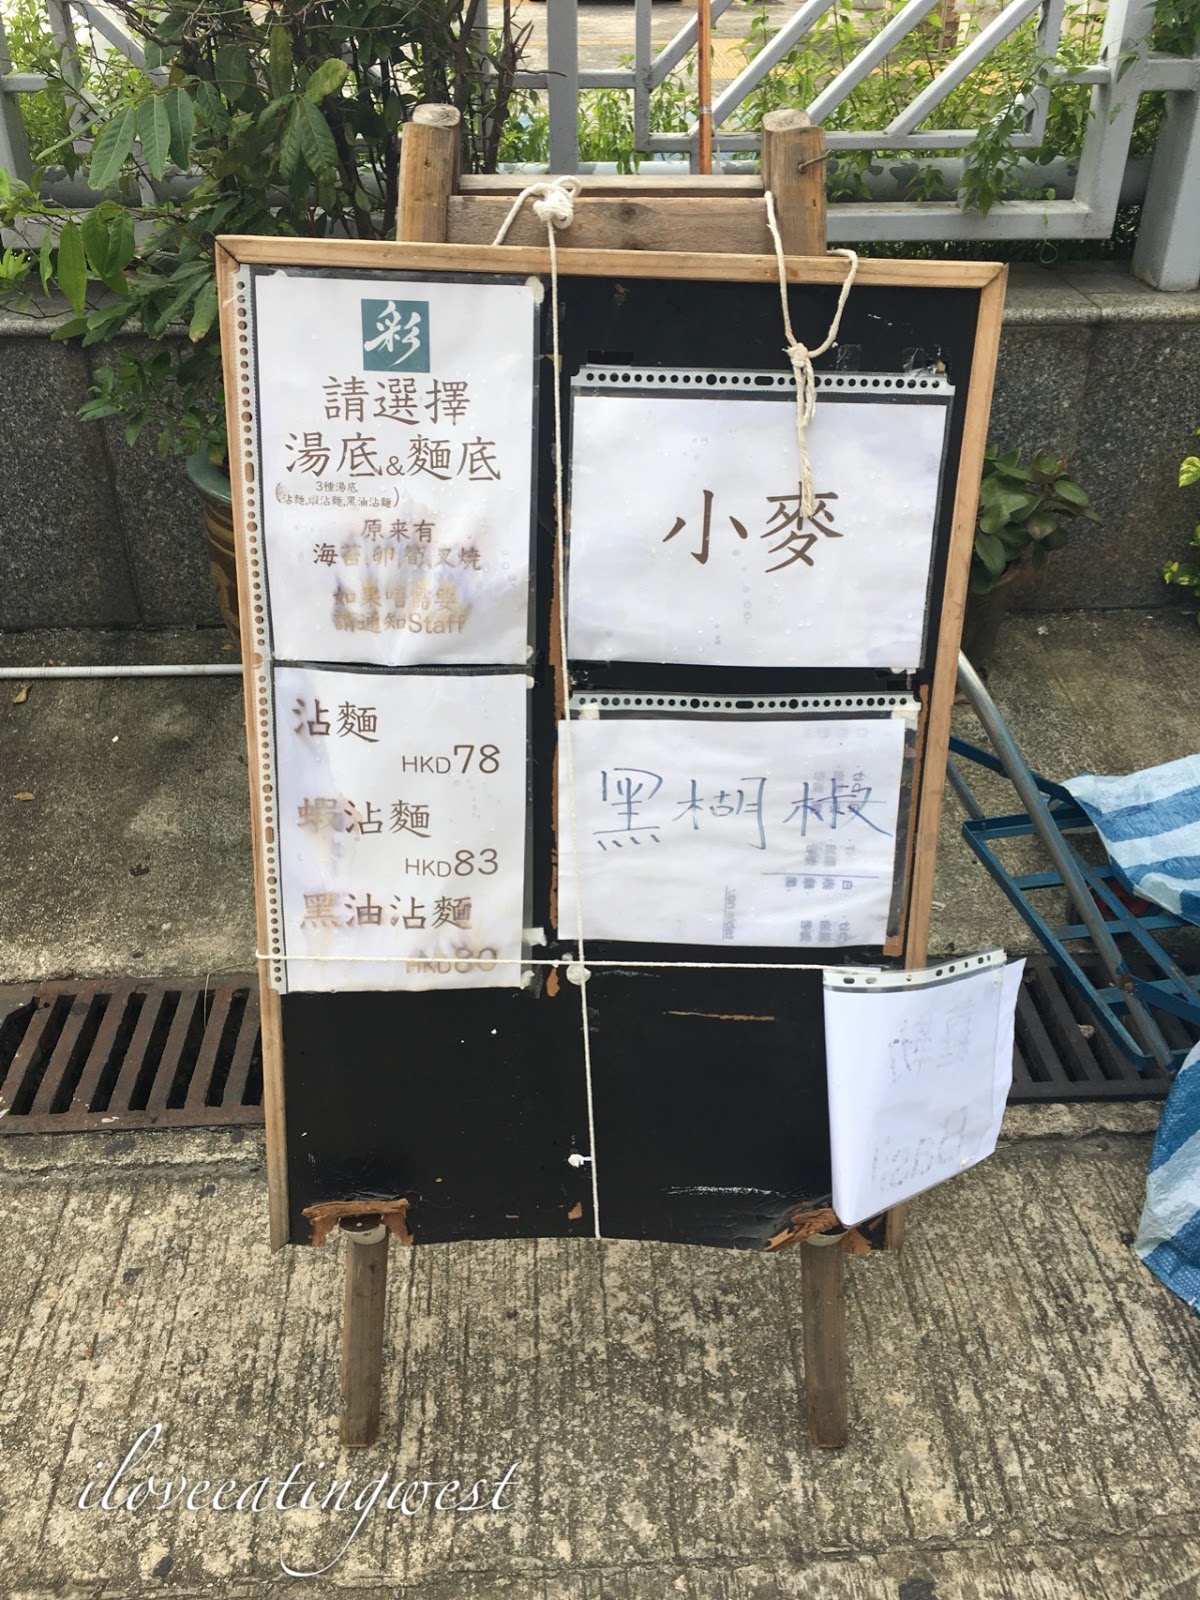 彩
請選擇
湯底&麵底
3種湯底
(沾麵,蝦沾麵,黑油沾麵)
原来有
海苔,卵,筍,叉燒
如果唔需要
請通知Staff
沾麵
HKD78
蝦沾麵
HKD83
黑油沾麵
HKD80
小麥
黑楜椒
Basil
iloveeatingwest